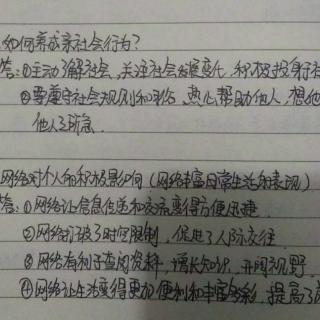 如何养成亲社会行为?
答:①主动了解社会,关注社会发展变化,积极投身社
②要遵守社会规则和习俗,热心帮助他人,想他
他人之所急.
网络对个人的积极影响(网络丰富日常生活的表现)
答:①网络让信息传递和交流变得方便迅捷.
②网络打破了时空限制,促进了人际交往
③网络有利于查阅资料,增长知识,开阔视野.
④网络让生活变得更加便利和丰富多彩,提高了